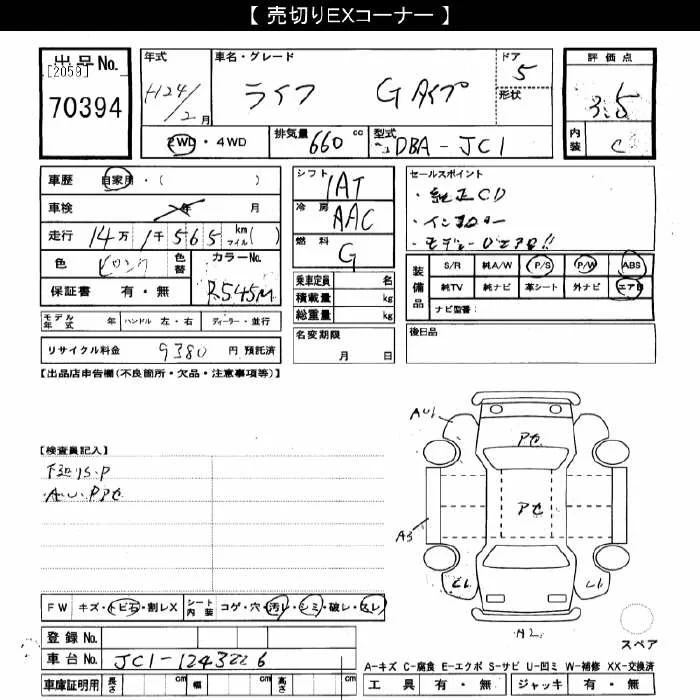 【 売切りEXコーナー 】
出品No.
[2059]
70394
年式
H24/2月
車名・グレード
ライフ Gタイプ
ドア
5
形状
評価点
3.5
内装
C
2WD・4WD
排気量 660 cc
型式
DBA-JC1
車歴 自家用・( )
車検 年 月
走行 14万 1千565 km マイル( )
色 ピンク
色替
カラーNo.
R545M
保証書 有・無
シフト
IAT
冷房
AAC
燃料
G
乗車定員 名
積載量 kg
総重量 kg
セールスポイント
・純正CD
・インパネAT
装備品
S/R 純A/W P/S P/W ABS
純TV 純ナビ 革シート 外ナビ エアB
ナビ型番:
モデル年式 年 ハンドル 左・右 ディーラー・並行
リサイクル料金 9380 円 預託済
名変期限
月 日
後日品
【出品店申告欄(不良箇所・欠品・注意事項等)】
【検査員記入】
下廻りS.P
AU1
Pセ
Pセ
A3
A2
スペア
FW キズ・トビ石・割レX シート内装 コゲ・穴・汚レ・シミ・破レ・スレ
登録 No.
車台 No. JC1-1243226
車庫証明用 長さ cm 幅 cm 高さ cm
A-キズ C-腐食 E-エクボ S-サビ U-凹ミ W-補修 XX-交換済
工具 有・無 ジャッキ 有・無